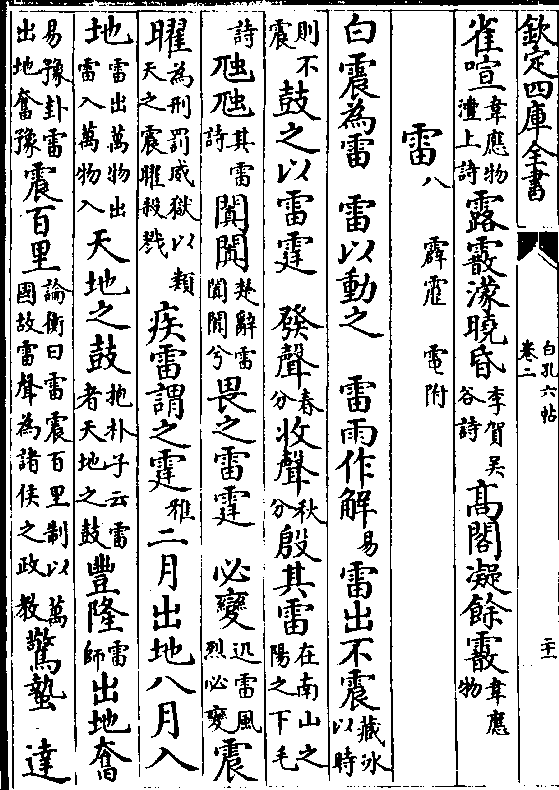 欽定四庫全書
白孔六帖
卷二
二十一
雀喧韋應物澧上詩露霰濛曉昏李賀吳谷詩高閣凝餘霰韋應物
雷八 霹靂 電附
白震為雷 雷以動之 雷雨作解易雷出不震藏冰以時
則不震鼓之以雷霆 發聲春分收聲秋分殷其雷在南山之陽之下毛
詩虺虺其雷詩闐闐楚辭雷闐闐兮畏之雷霆 必變迅雷風烈必變震
曜為刑罰威獄以類天之震曜殺戮疾雷謂之霆雅二月出地八月入
地雷出萬物出雷入萬物入天地之鼓抱朴子云雷者天地之鼓豐隆雷師出地奮
易豫卦雷出地奮豫震百里論衡曰雷震百里制以萬國故雷聲為諸侯之政教驚蟄 達